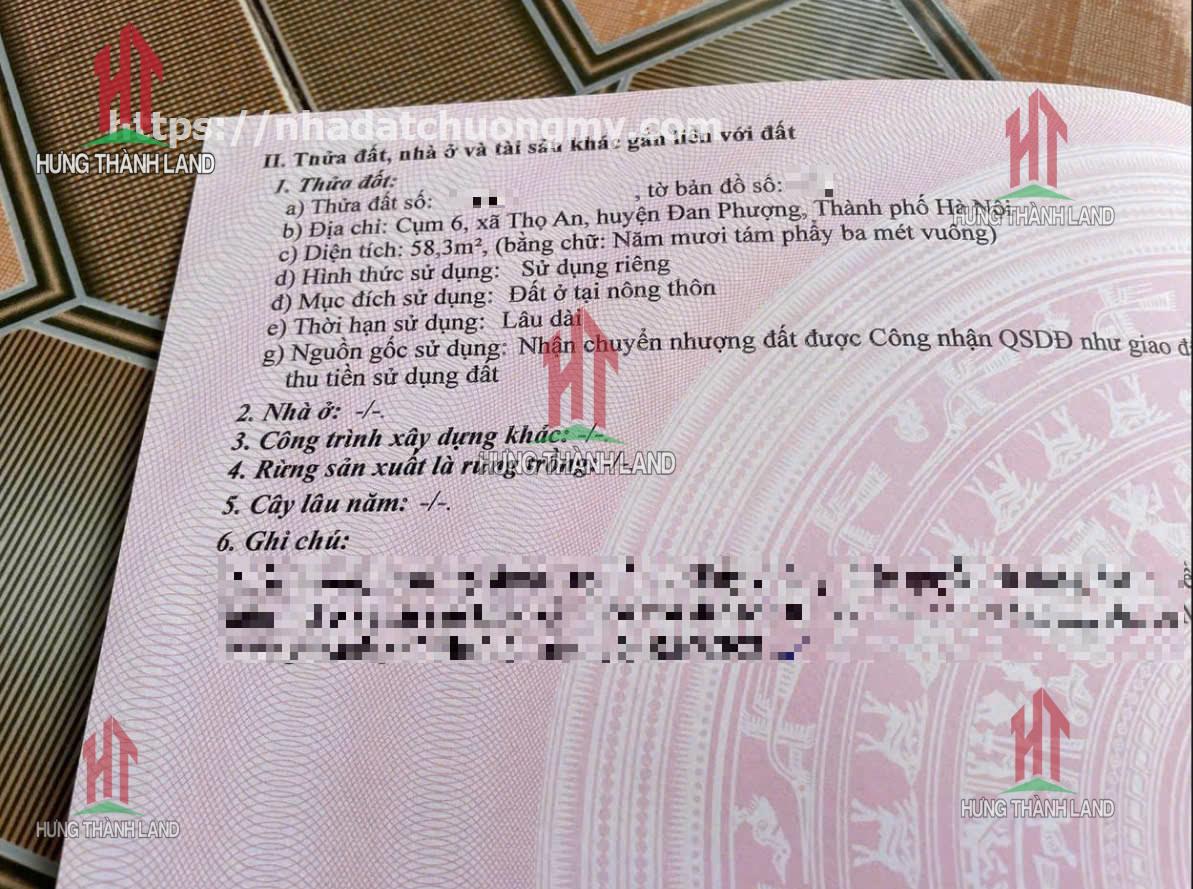 https://nhadatchuongmy.com
HƯNG THÀNH LAND
HƯNG THÀNH LAND
II. Thửa đất, nhà ở và tài sản khác gắn liền với đất
1. Thửa đất:
a) Thửa đất số: , tờ bản đồ số:
b) Địa chỉ: Cụm 6, xã Thọ An, huyện Đan Phượng, Thành phố Hà Nội
c) Diện tích: 58,3m², (bằng chữ: Năm mươi tám phẩy ba mét vuông)
d) Hình thức sử dụng: Sử dụng riêng
đ) Mục đích sử dụng: Đất ở tại nông thôn
e) Thời hạn sử dụng: Lâu dài
g) Nguồn gốc sử dụng: Nhận chuyển nhượng đất được Công nhận QSDĐ như giao
thu tiền sử dụng đất
2. Nhà ở: -/-.
3. Công trình xây dựng khác: -/-.
4. Rừng sản xuất là rừng trồng: -/-.
HƯNG THÀNH LAND
5. Cây lâu năm: -/-.
6. Ghi chú:
HƯNG THÀNH LAND
HƯNG THÀNH LAND